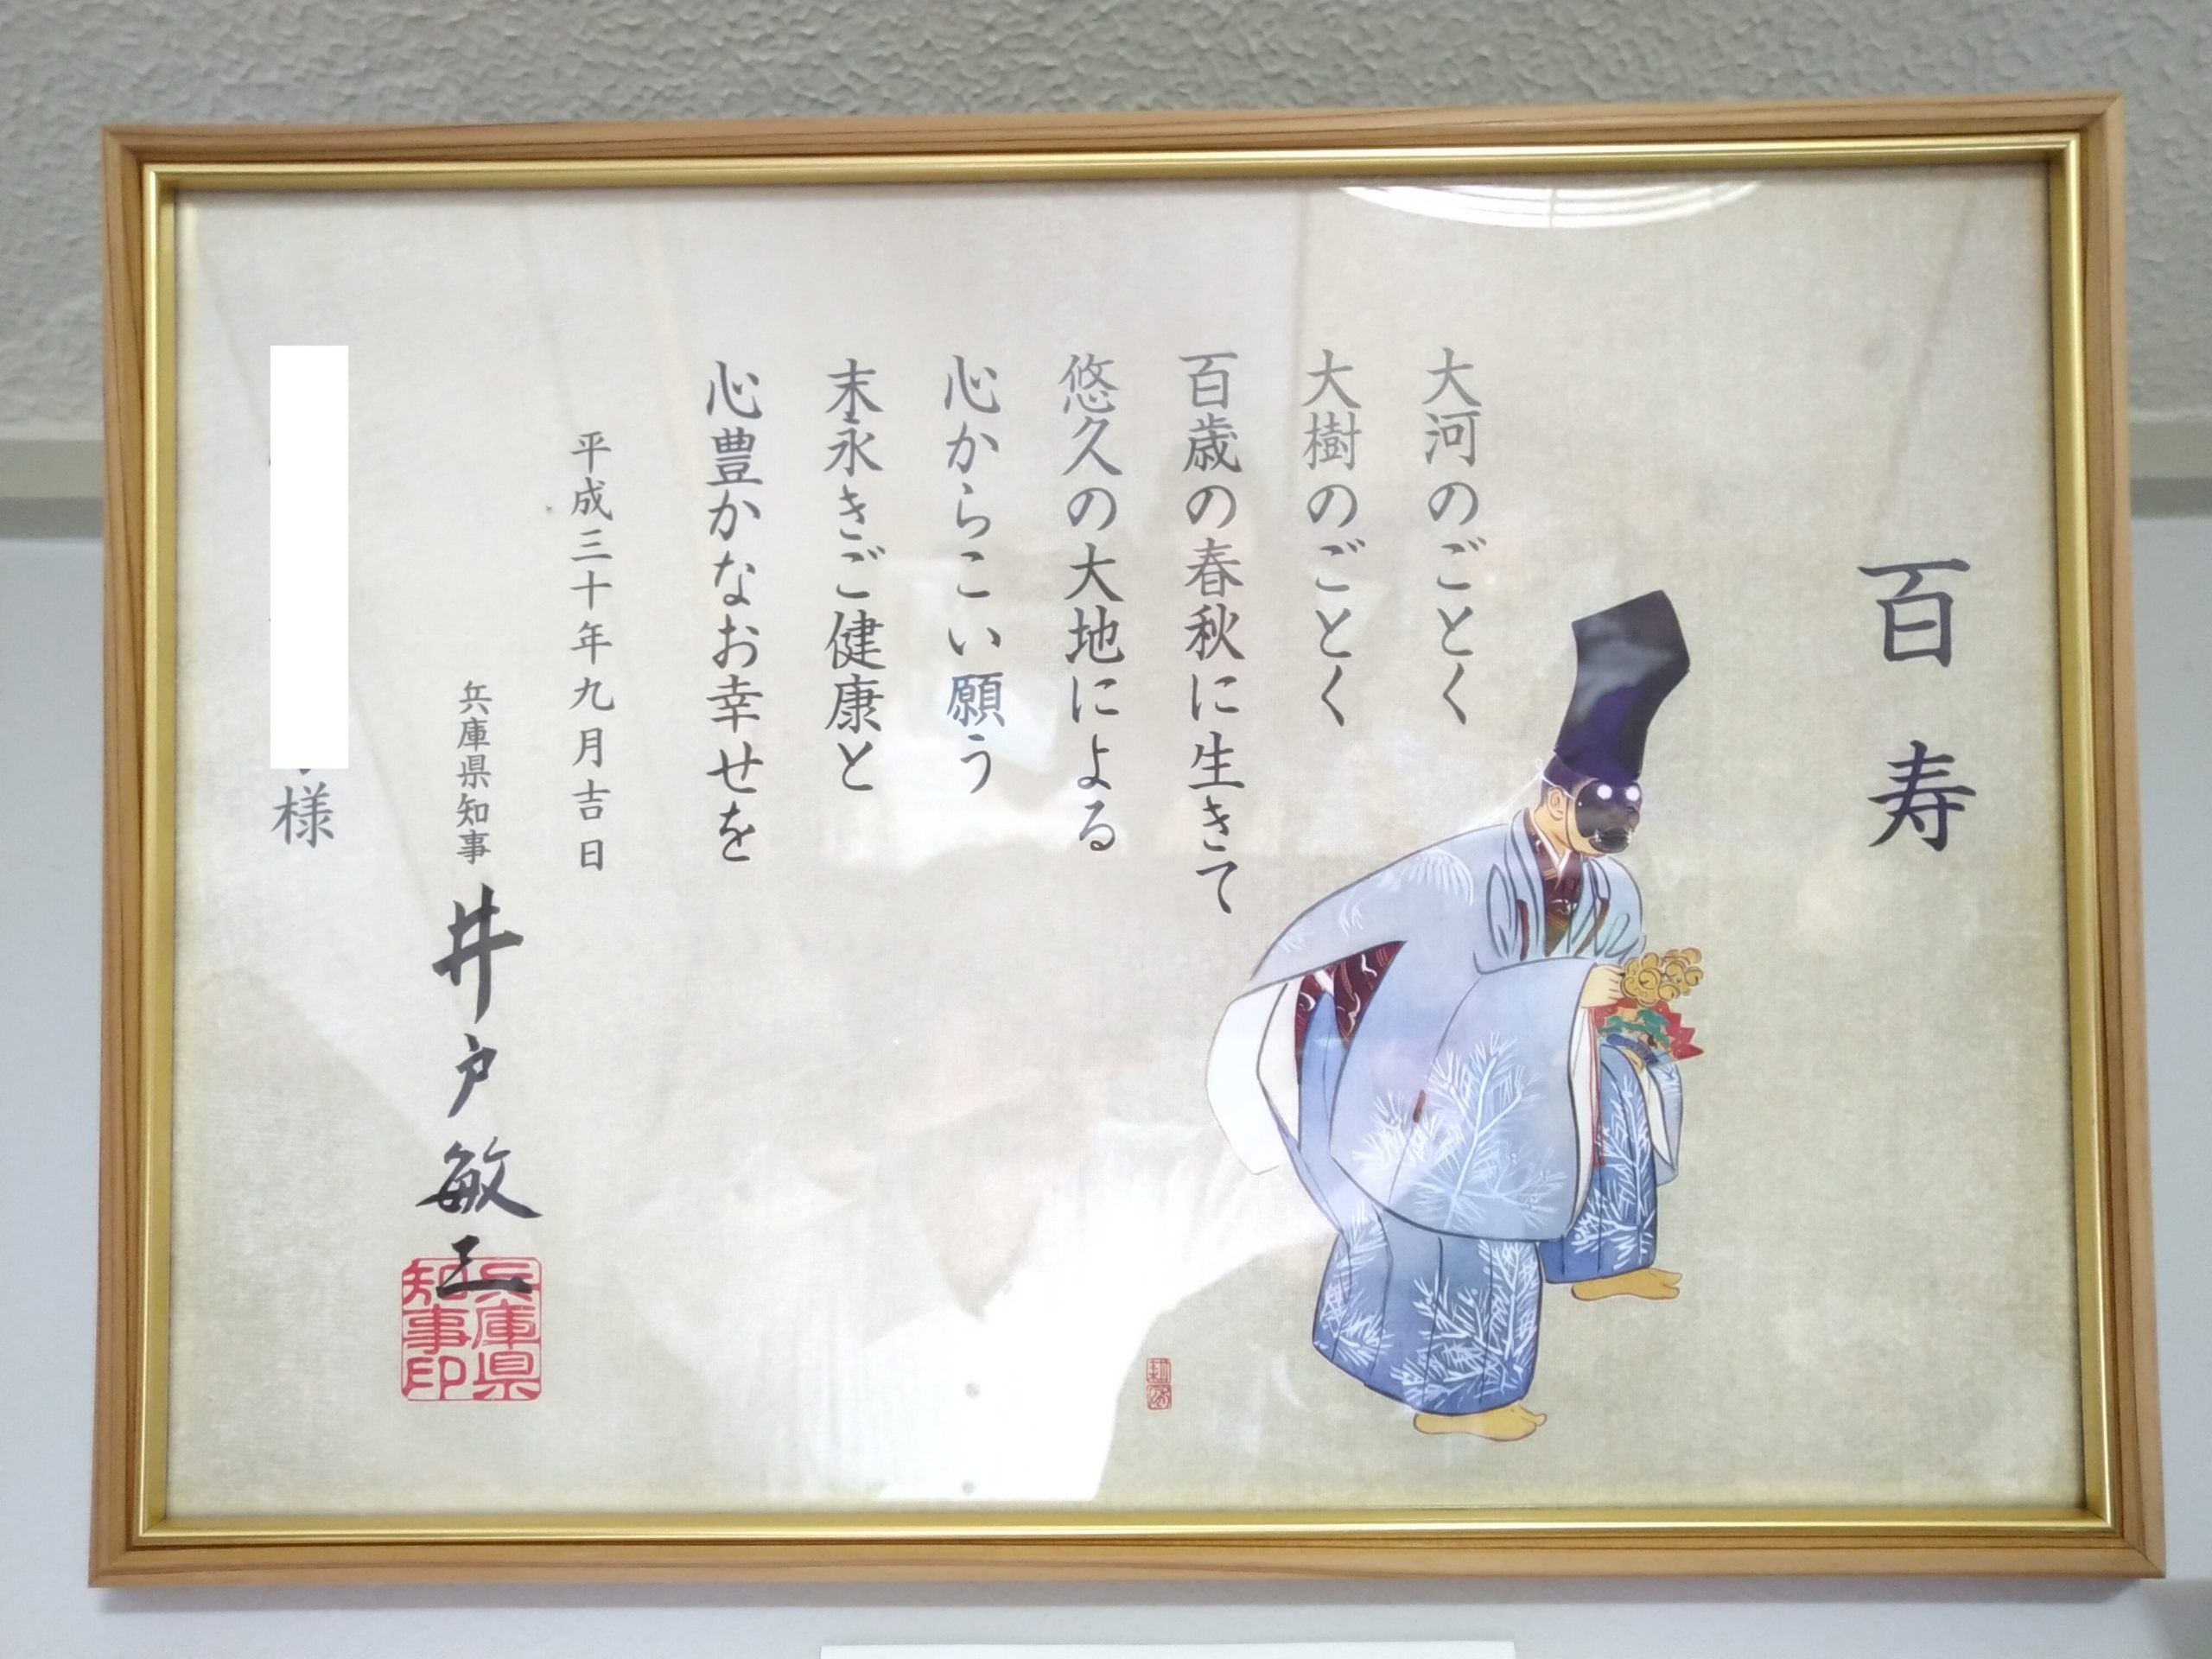 百寿
大河のごとく
大樹のごとく
百歳の春秋に生きて
悠久の大地による
心からこい願う
末永きご健康と
心豊かなお幸せを
平成三十年九月吉日
兵庫県知事 井戸敏三
兵庫県知事印
様